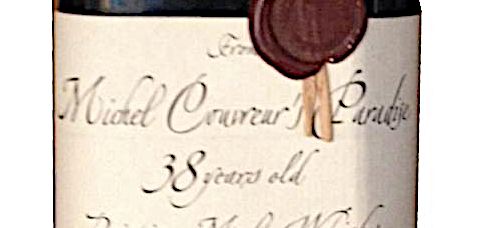 From
Michel Couvreur's Paradise
38 years old